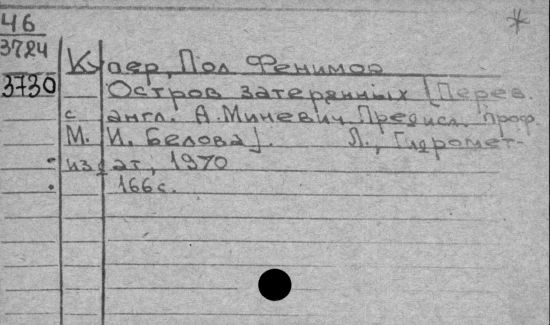 46
3724
3730
Купер, Пол Фенимор
Остров затерянных [Перев.
с англ. А. Миневич Предисл. проф.
М. И. Белова]. Л., Гидромет-
издат, 1970
166 с.